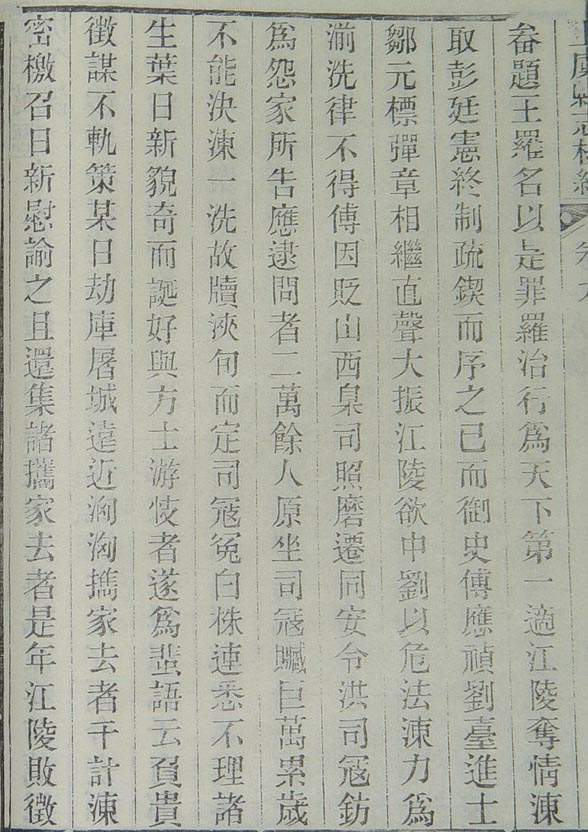 畚題王羅名以是罪羅治行爲天下第一適江陵奪情涷
取彭廷憲終制疏鍥而序之已而御史傅應禎劉臺進士
鄒元標彈章相繼直聲大振江陵欲中劉以危法涷力爲
湔洗律不得傅因貶山西臬司照磨遷同安令洪司冦鈁
爲怨家所告應逮問者二萬餘人原坐司冦贓巨萬累歲
不能決涷一洗故牘浹旬而定司冦冤白株連悉不理諸
生葉日新貌奇而誕好與方士游忮者遂爲蜚語云負貴
徵謀不軌策某日劫庫屠城遠近洶洶攜家去者千計涷
密檄召日新慰諭之且還集諸攜家去者是年江陵敗徵